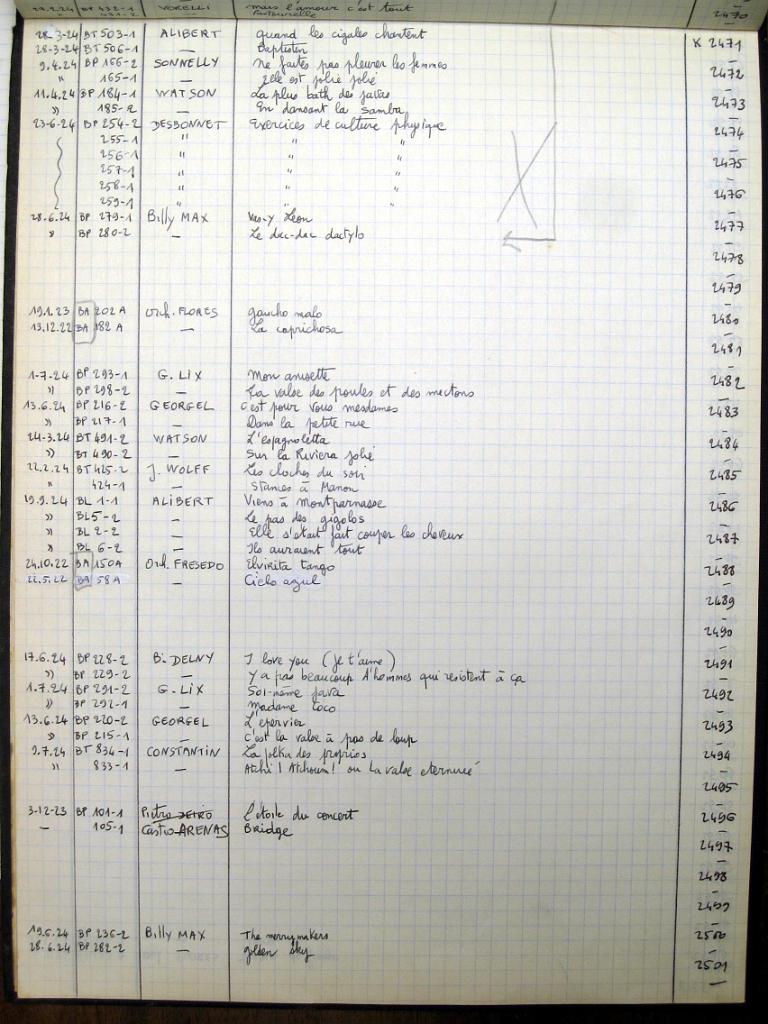 27.2.24 BP 432-1 VORELLI mais l'amour c'est tout
431-2 — Pastourelle 2470
28-3-24 BT 503-1 ALIBERT quand les cigales chantent K 2471
28-3-24 BT 506-1 — —
9.4.24 BP 166-2 SONNELLY Ne faites pas pleurer les femmes 2472
" 165-1 — Elle est jolie jolie —
11.4.24 BP 184-1 WATSON La plus bath des javas 2473
" 185-2 — En dansant la samba —
23-6-24 BP 254-2 DESBONNET Exercices de culture physique 2474
255-1 " " " —
256-1 " " " 2475
257-1 " " " —
258-1 " " " 2476
259-1 " " " —
28.6.24 BP 279-1 Billy MAX Vas-y Leon 2477
" BP 280-2 — Le dac-dac dactylo —
2478
—
2479
—
19.1.23 BA 202 A Orch. FLORES gaucho malo 2480
13.12.22 BA 182 A — La caprichosa —
2481
—
1-7-24 BP 293-1 G. LIX Mon anisette 2482
" BP 298-2 — La valse des poules et des mectons —
13.6.24 BP 216-2 GEORGEL C'est pour vous mesdames 2483
" BP 217-1 — Dans la petite rue —
24-3.24 BT 491-2 WATSON L'espagnoletta 2484
" BT 490-2 — Sur la Riviera jolie —
22.2.24 BT 425-2 J. WOLFF Les cloches du soir 2485
" 424-1 — Stances à Manon —
19.9.24 BL 1-1 ALIBERT Viens à Montparnasse 2486
" BL 5-2 — Le pas des gigolos —
" BL 2-2 — Elle s'était fait couper les cheveux 2487
" BL 6-2 — Ils auraient tout —
24.10.22 BA 150A Orch. FRESEDO Elvirita tango 2488
22.5.22 BA 58 A — Cielo azul —
2489
—
2490
—
17.6.24 BP 228-2 B. DELNY I love you (je t'aime) 2491
" BP 229-2 — Y a pas beaucoup d'hommes qui resistent à ça —
1.7.24 BP 291-2 G. LIX Soi-même java 2492
" BP 292-1 — Madame Coco —
13.6.24 BP 220-2 GEORGEL L'epervier 2493
" BP 215-1 — C'est la valse à pas de loup —
9.7.24 BT 834-1 CONSTANTIN La polka des proprios 2494
" 833-1 — Atchi! Atchoum! ou La valse eternuée —
2495
—
3-12-23 BP 101-1 Pietro DEIRO L'étoile du concert 2496
— 105-1 Castro ARENAS Bridge —
2497
—
2498
—
2499
—
19.6.24 BP 236-2 Billy MAX The merrymakers 2500
28.6.24 BP 282-2 — golden sky —
2501
—